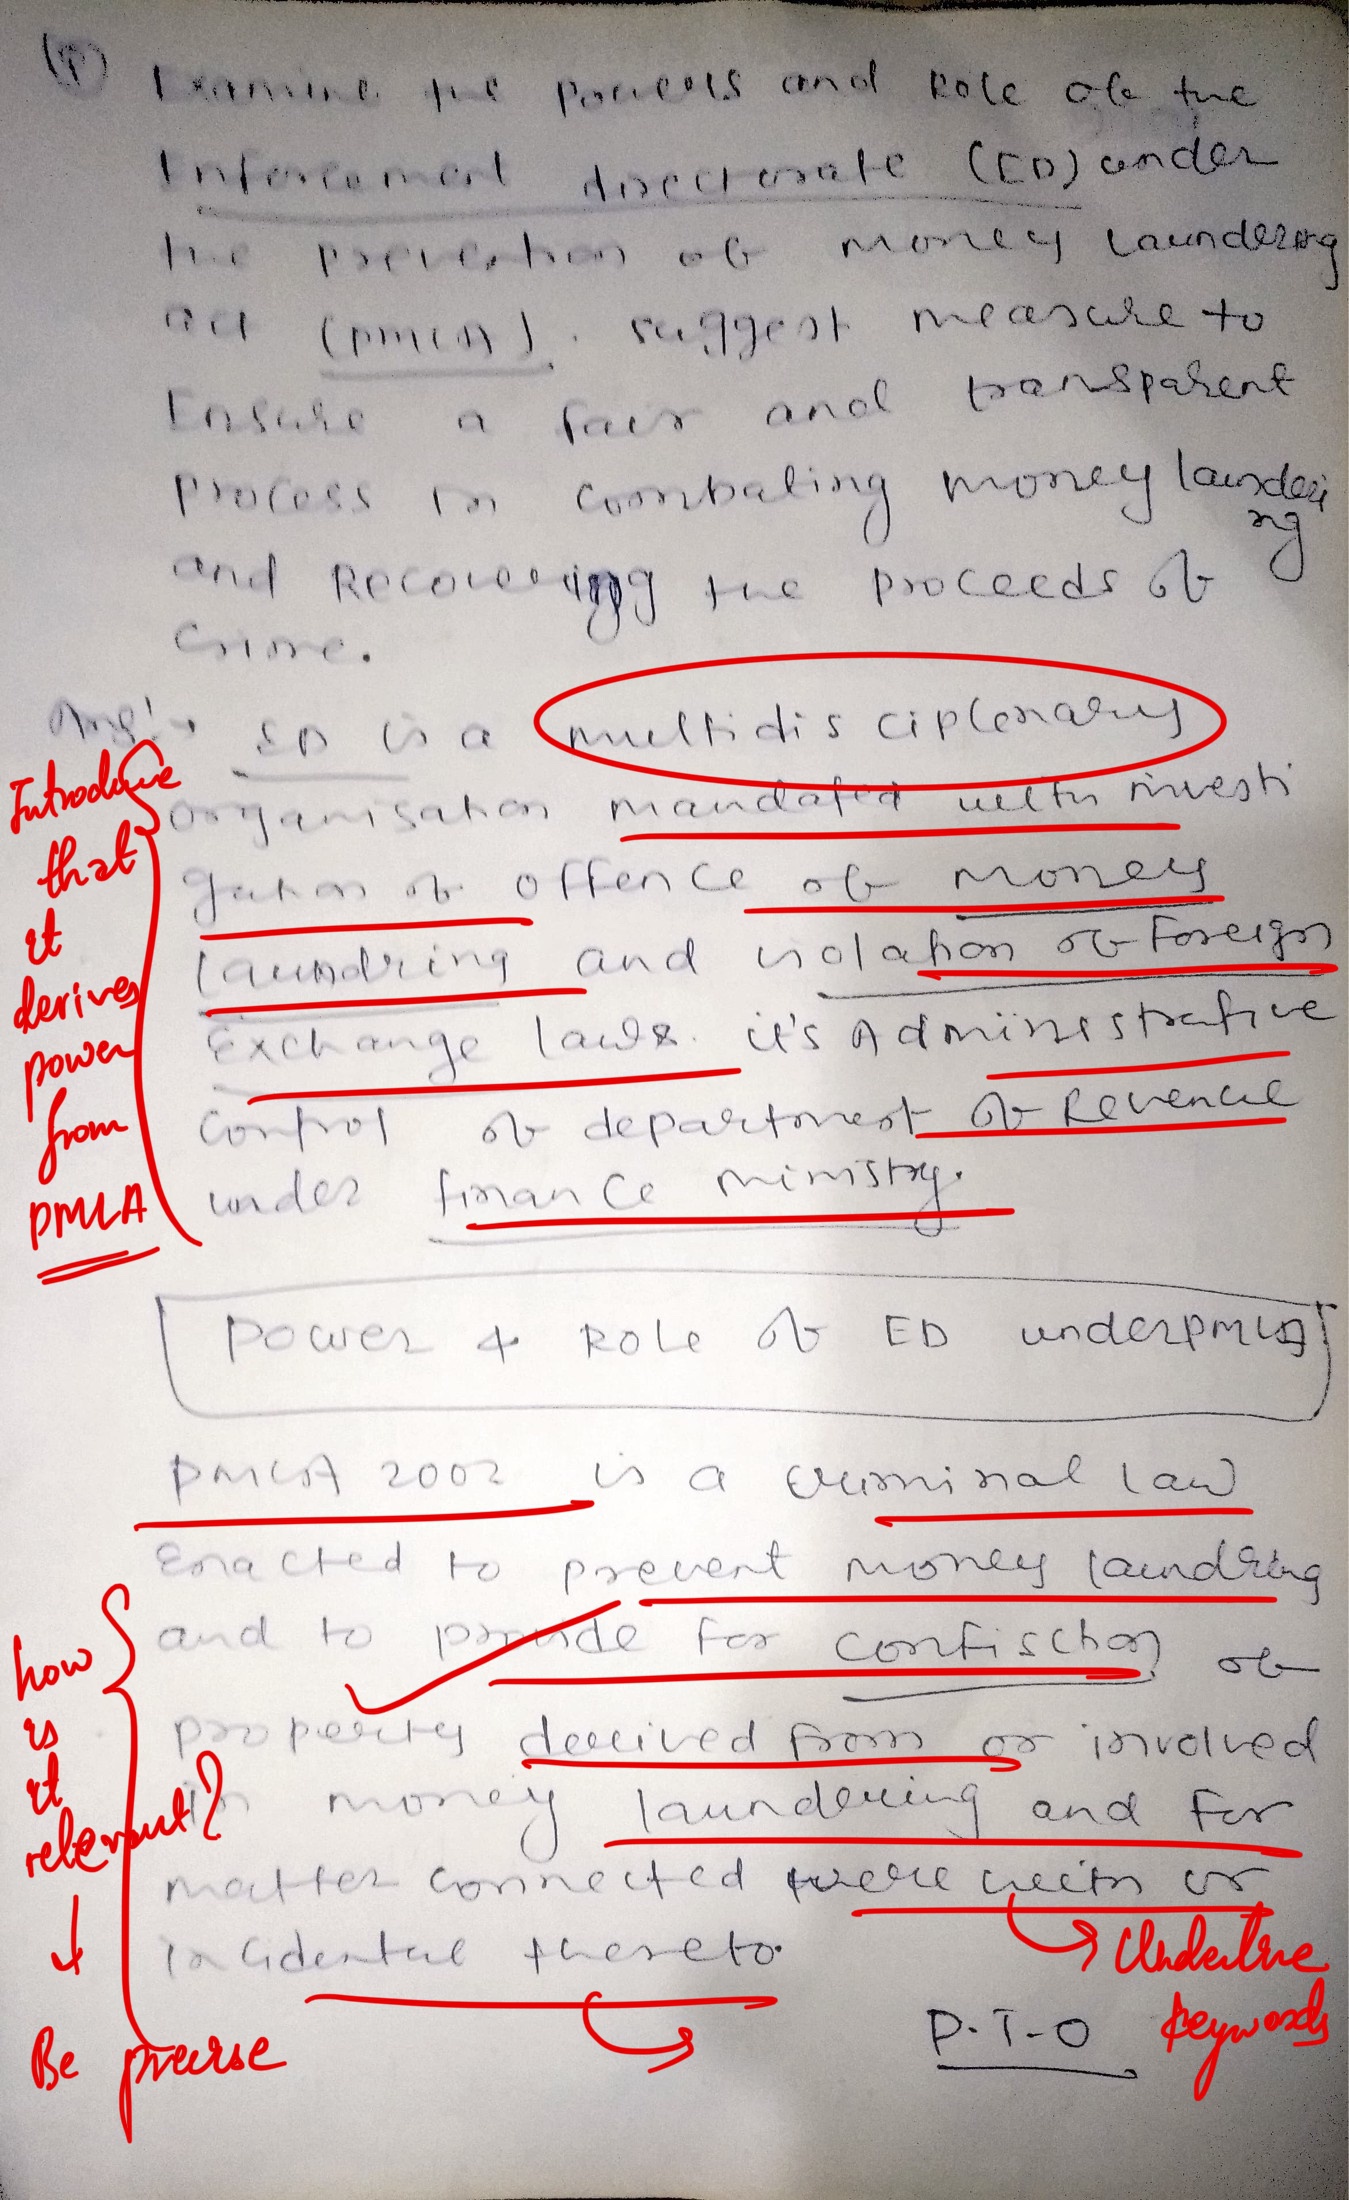 Examine the powers and Role of the
Enforcement directorate (ED) under
the prevention of money laundering
act (PMLA). suggest measure to
Ensure a fair and transparent
process in combating money launderi
ng
and Recovering the proceeds of
Crime.
Ans:→ ED is a multidisciplenary
organisation mandated with investi
gation of offence of money
laundring and violation of Foreign
Exchange laws. it's Administrative
control of department of Revenue
under finance ministry.
Introduce
that
it
derives
power
from
PMLA
Power & Role of ED under PMLA
PMLA 2002 is a criminal law
Enacted to prevent money laundring
and to provide for confisction of
property derived from or involved
in money laundering and for
matter connected there with or
incidental thereto.
how
is
it
relevant?
Be precise
Underline
keywords
P.T-O